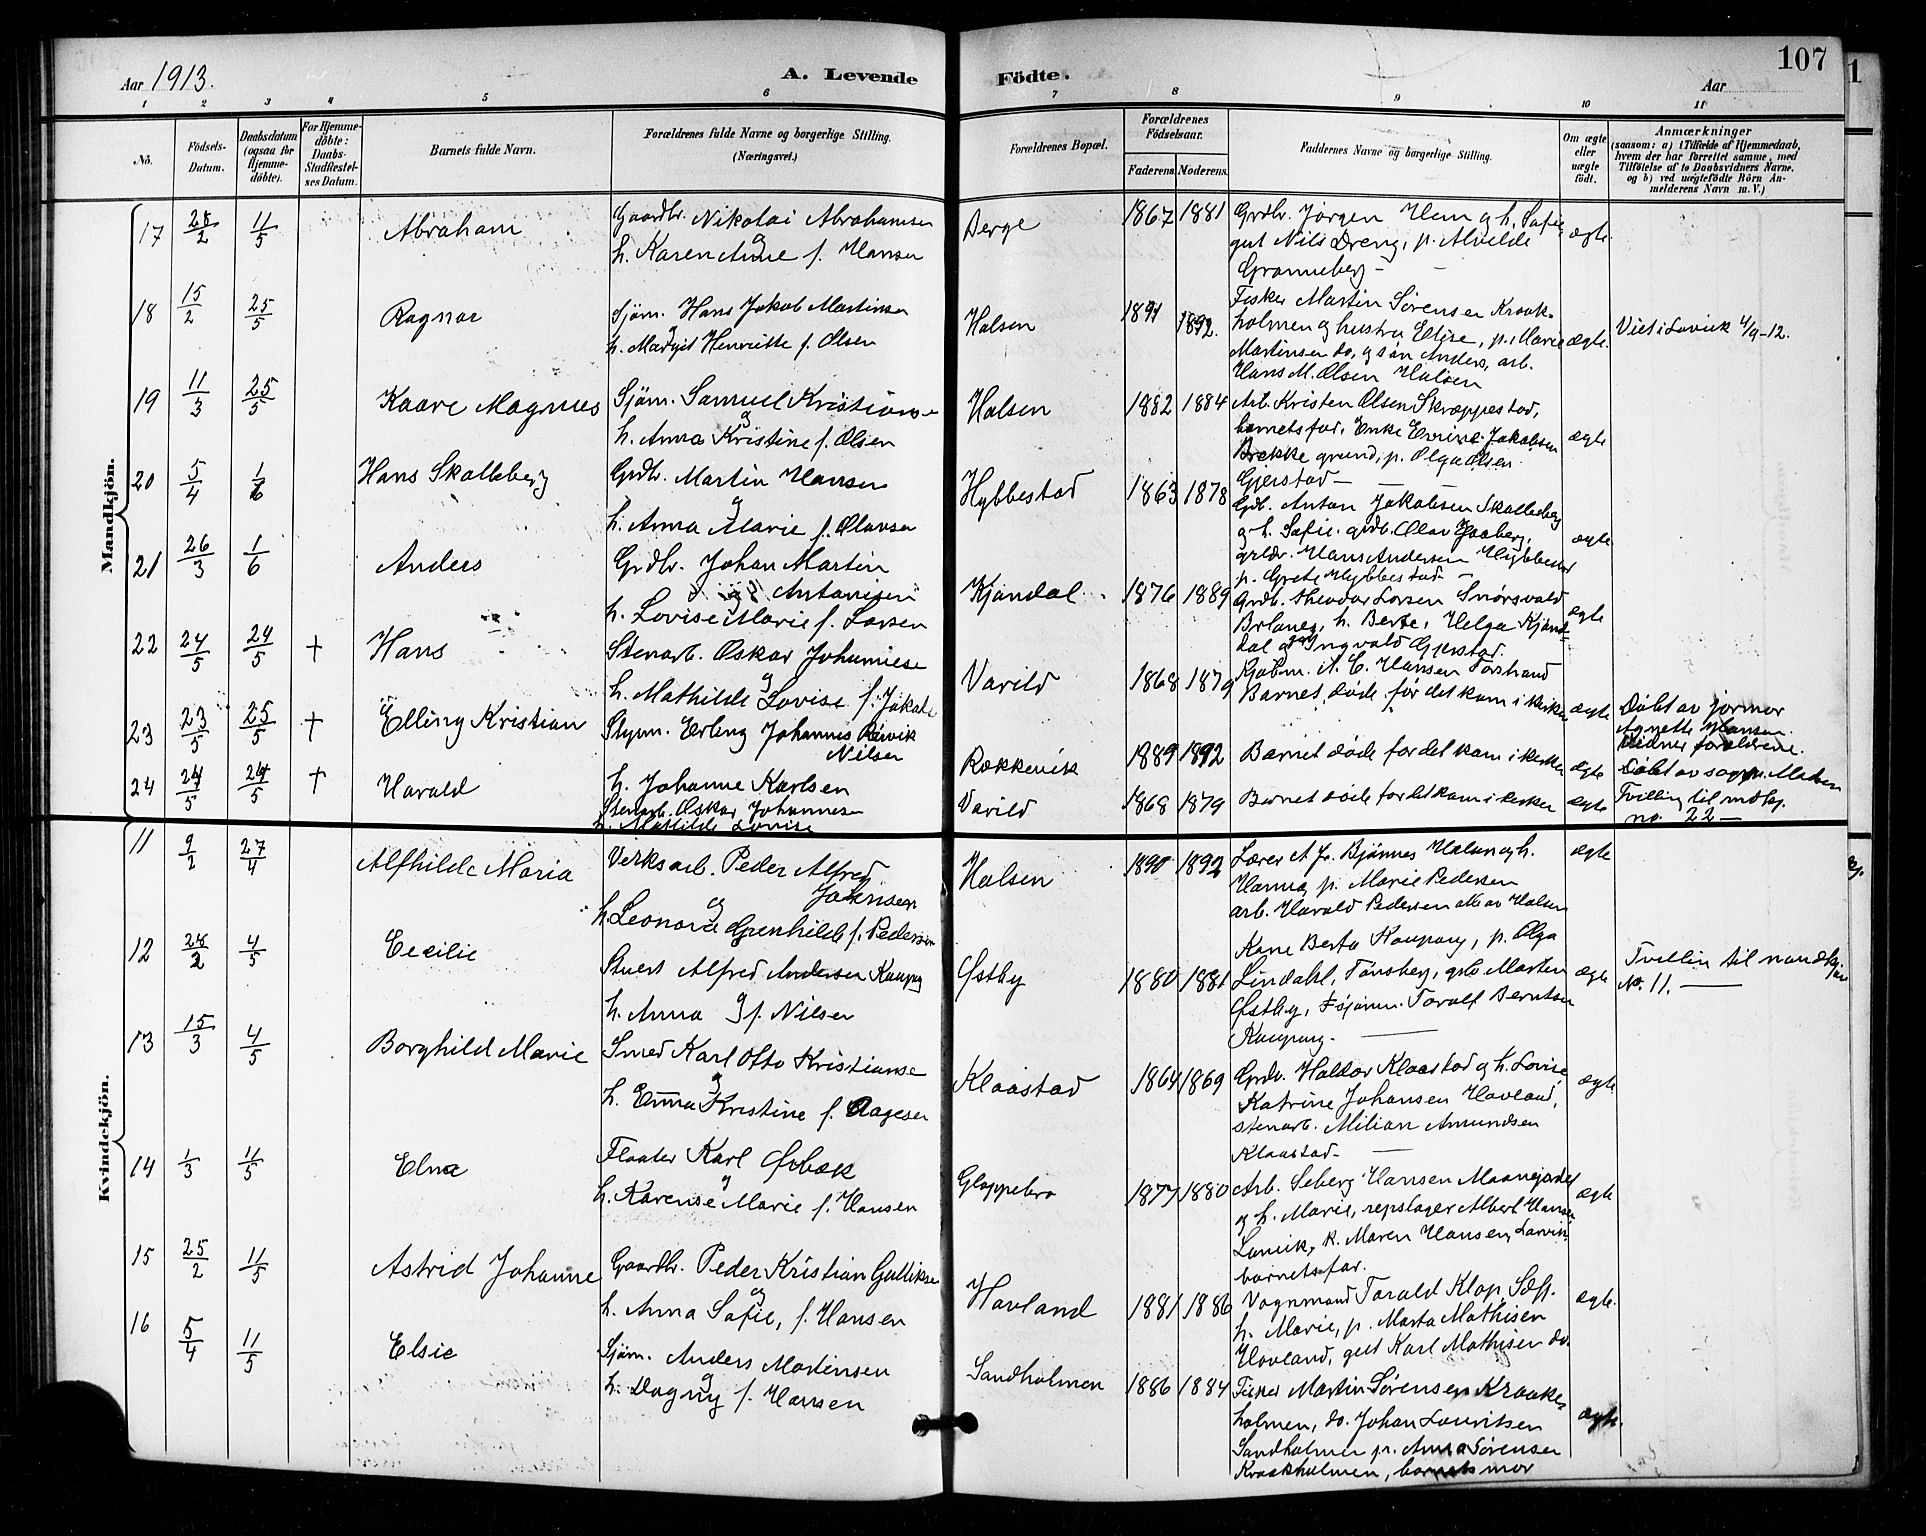 107
Aar 1913.
A. Levende Födte.
Aar
1 2 3 4 5 6 7 8 9 10 11
No.
Födsels-Datum.
Daabsdatum (ogsaa for Hjemme-döbte).
For Hjemme-döbte: Daabs-Stadfæstel-ses Datum.
Barnets fulde Navn.
Forældrenes fulde Navne og borgerlige Stilling. (Næringsvei.)
Forældrenes Bopæl.
Forældrenes Födselsaar.
Faderens. Moderens.
Faddernes Navne og borgerlige Stilling.
Om ægte eller uægte födt.
Anmærkninger
(saasom: a) i Tilfælde af Hjemmedaab, hvem der har forrettet samme, med Tilföielse af to Daabsvidners Navne, og b) ved uægtefödte Börn An-melderens Navn m. V.)
Mandkjön.
17 28/2 11/5 Abraham
Gaardbr. Nikolai Abrahamsen
og
h. Karen Anne f. Hansen
Berge 1867 1881
Grdbr. Jørgen Hem og h. Sofie,
gut Nils Dreng, p. Alvilde
Granneberg –
ægte.
18 15/2 25/5 Ragnar
Sjøm. Hans Jakob Martinsen
og
h. Margit Henriette f. Olsen
Halsen 1891 1892.
Fisker Martin Sørensen Kraak-
holmen og hustru Elise, p. Marie
Martinsen do, og søn Anders, arb.
Hans M. Olsen Halsen
ægte.
Viet i Larvik 4/9-12.
19 11/3 25/5 Kaare Magnus
Sjøm. Samuel Kristians
og
h. Anna Kristine f. Olsen
Halsen 1882 1884
Arb. Kristen Olsen Skræppestad,
barnets far, Enke Emine Jakobsen
Brekke grund, p. Olga Olsen
Gjerstad –
ægte
20 5/4 1/6 Hans Skalleberg
Grdbr. Martin Hansen
og
h. Anna Marie f. Olavsen
Hybbestad 1863 1878
Grdb. Anton Jakobsen Skalleberg
og h. Sofie. grdb. Olav
grdbr. Hans Andersen Hybbestad
p. Grete Hybbestad –
ægte
21 26/3 1/6 Anders
Grdbr. Johan Martin
og Antonisen
h. Lovise Marie f. Larsen
Kjøndal 1876 1889
Grdb. Theodor Larsen
h. Berte, Helga Kjøn-
dal og Ingvald Gjerstad.
ægte
22 24/5 24/5 † Hans
Stenarb. Oskar Johannese
og
h. Mathilde Lovise f. Jakob
Varild 1868 1879
Kjøbm. A. C. Hansen Torstrand
Barnet døde før det kom i kirken
ægte
Døbt av jormor
Agnette Hansen.
Vidner forældrene.
23 23/5 25/5 † Elling Kristian
Styrm. Erling Johannes Rævik
Nilsen
h. Johanne Karlsen
Rækkevik 1889 1892
Barnet døde før det kom i kirken
ægte
Døbt av sogpr. Madsen
24 24/5 24/5 † Harald
Stenarb. Oskar Johannesen
h. Mathilde Lovise
Varild 1868 1879
Barnet døde før det kom i kirken
ægte
Tvilling til mdkj.
no. 22 –
Kvindekjön.
11 9/2 27/4 Alfhilde Maria
Verksarb. Peder Alfred
Johnsen
og
h. Leonora Grenhilde f. Pedersen
Halsen 1890 1892
Lærer A. Fr. Bjønnes Halsen og h.
Hanna, p. Marie Pedersen
arb. Harald Pedersen alle av Halsen
ægte
12 28/2 4/5 Cecilie
Stuert Alfred Andersen Kaupang
og
h. Anna f. Nilsen
Østby 1880 1881
Kone Berta Kaupang, p. Olga
Lindahl, Tønsberg, grdb Marten
Østby, sjøm. Toralf Berntsen
Kaupang. –
ægte
Tvilling til mandkjøn
No. 11. –
13 15/3 4/5 Borghild Marie
Smed Karl Otto Kristianse
og
h. Emma Kristine f. Aagesen
Klaastad 1864 1869
Grdb. Haldor Klaastad og h. Lovise
Katrine Johansen Havland,
stenarb. Milian Amundsen
Klaastad. –
ægte
14 1/3 11/5 Elna
Fløter Karl Ørbæk
og
h. Karense Marie f. Hansen
Gloppebro 1877 1880
Arb. Seberg Hansen Maanejordet
og h. Marie, repslager Albert Hansen
Larvik, k. Maren Hansen, Larvik
barnets far.
ægte
15 25/2 11/5 Astrid Johanne
Gaardbr. Peder Kristian Gulliksen
og
h. Anna Sofie, f. Hansen
Havland 1881 1886
Vognmand Torald Klop,
h. Marie, p. Marta Mathisen
Hovland, gut Karl Mathisen do.
ægte.
16 5/4 11/5 Elsie
Sjøm. Anders Martinsen
og
h. Dagny f. Hansen
Sandholmen 1886 1884
Fisker Martin Sørensen Kraake-
holmen, do. Johan Lauritsen
Sandholmen p. Anna Sørensen
Kraakholmen, barnets mor
ægte.